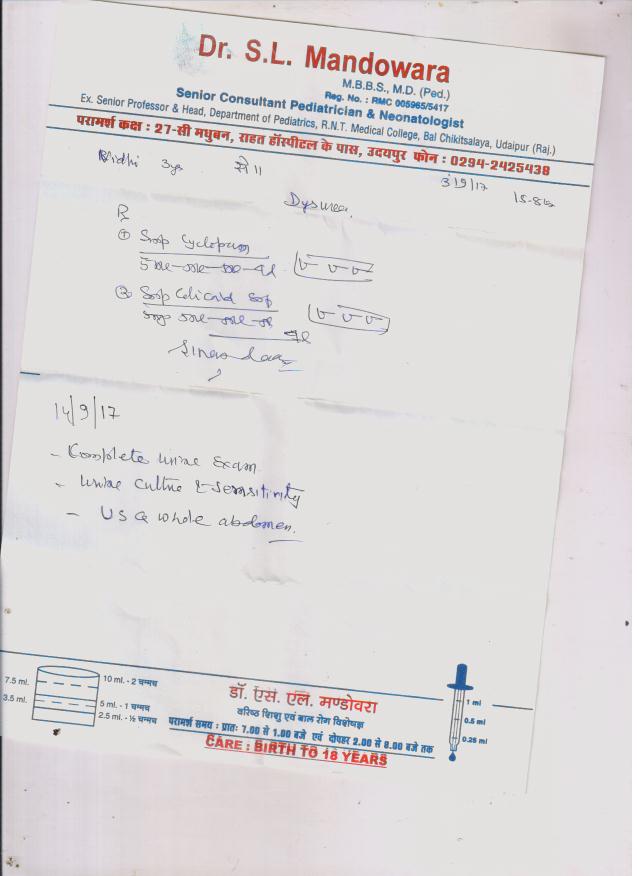 Dr. S.L. Mandowara
M.B.B.S., M.D. (Ped.)
Reg. No. : RMC 005965/5417
Senior Consultant Pediatrician & Neonatologist
Ex. Senior Professor & Head, Department of Pediatrics, R.N.T. Medical College, Bal Chikitsalaya, Udaipur (Raj.)
परामर्श कक्ष : 27-सी मधुबन, राहत हॉस्पीटल के पास, उदयपुर फोन : 0294-2425438
3/9/17
Rx
① Syp Cyclopam
② Syp
14/9/17
- Complete urine Exam
- Urine culture & Sensitivity
- USG whole abdomen.
7.5 ml.
3.5 ml.
10 ml. - 2 चम्मच
5 ml. - 1 चम्मच
2.5 ml. - ½ चम्मच
डॉ. एस. एल. मण्डोवरा
वरिष्ठ शिशु एवं बाल रोग विशेषज्ञ
परामर्श समय : प्रातः 7.00 से 1.00 बजे एवं दोपहर 2.00 से 8.00 बजे तक
CARE : BIRTH TO 18 YEARS
1 ml
0.5 ml
0.25 ml